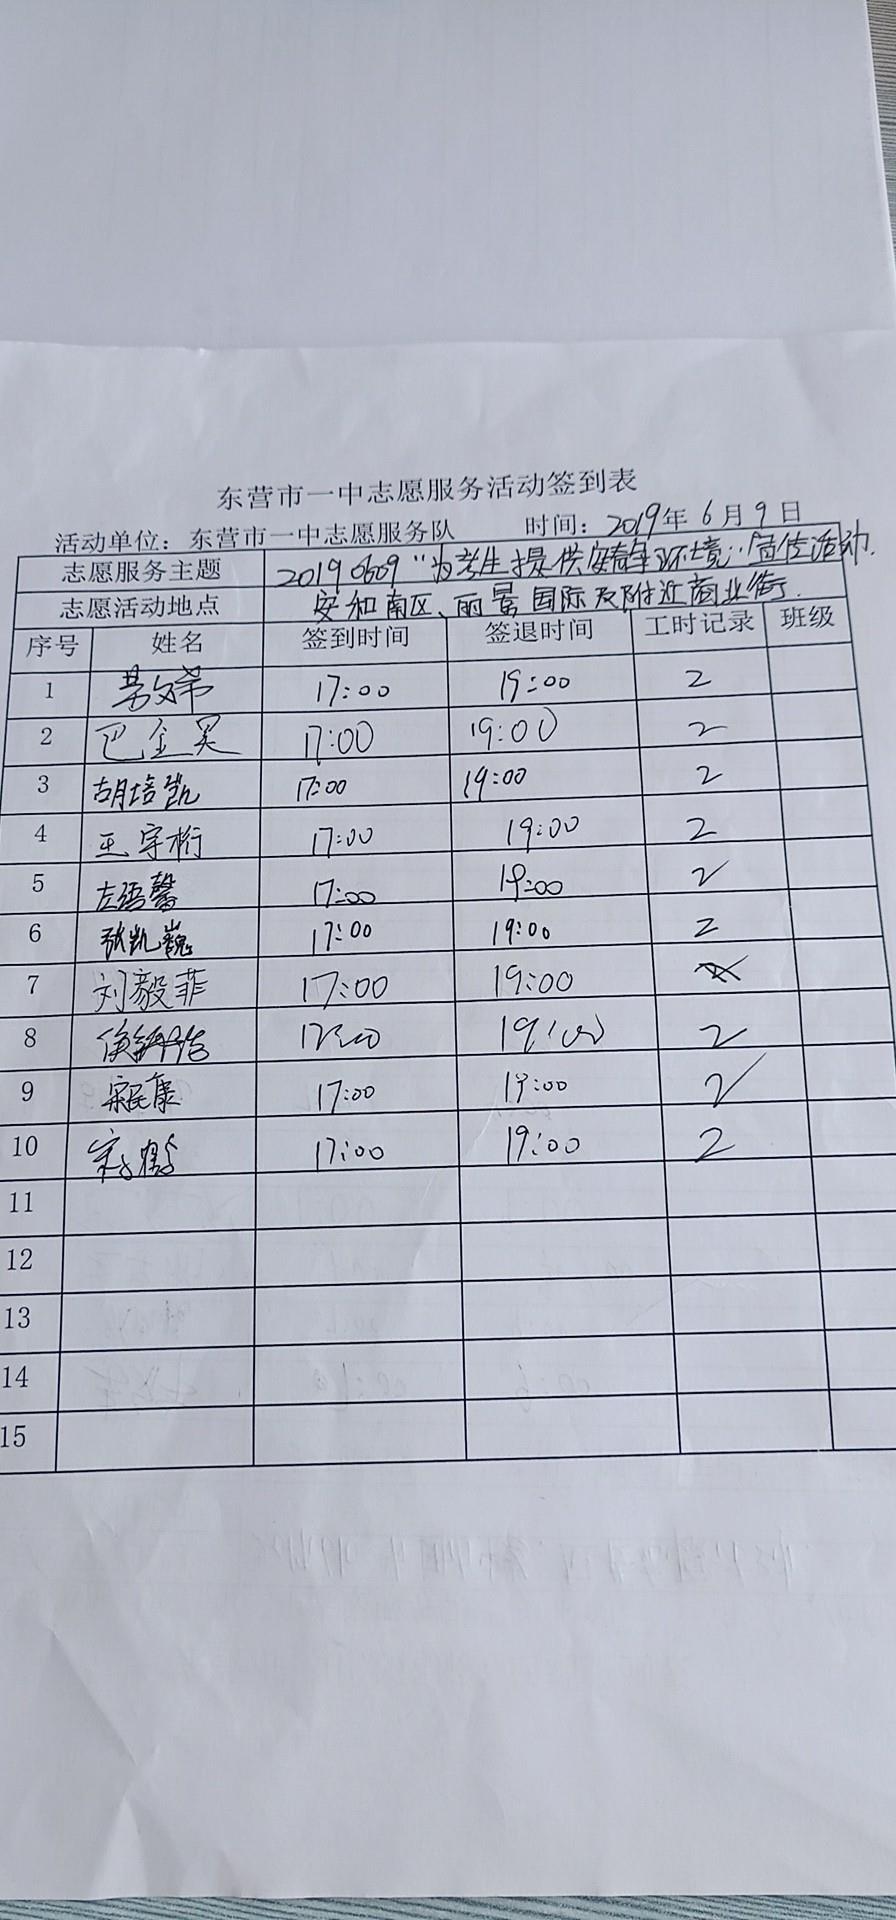 东营市一中志愿服务活动签到表
活动单位：东营市一中志愿服务队 时间：2019年6月9日
志愿服务主题 20190609“为考生提供安静环境”宣传活动.
志愿活动地点 安和南区、丽景国际及附近商业街.
序号 姓名 签到时间 签退时间 工时记录 班级
1 17:00 19:00 2
2 巴金昊 17:00 19:00 2
3 胡培凯 17:00 19:00 2
4 王宇桁 17:00 19:00 2
5 左语馨 17:00 19:00 2
6 张凯巍 17:00 19:00 2
7 刘毅菲 17:00 19:00
8 17:00 19:00 2
9 宋民康 17:00 19:00 2
10 17:00 19:00 2
11
12
13
14
15